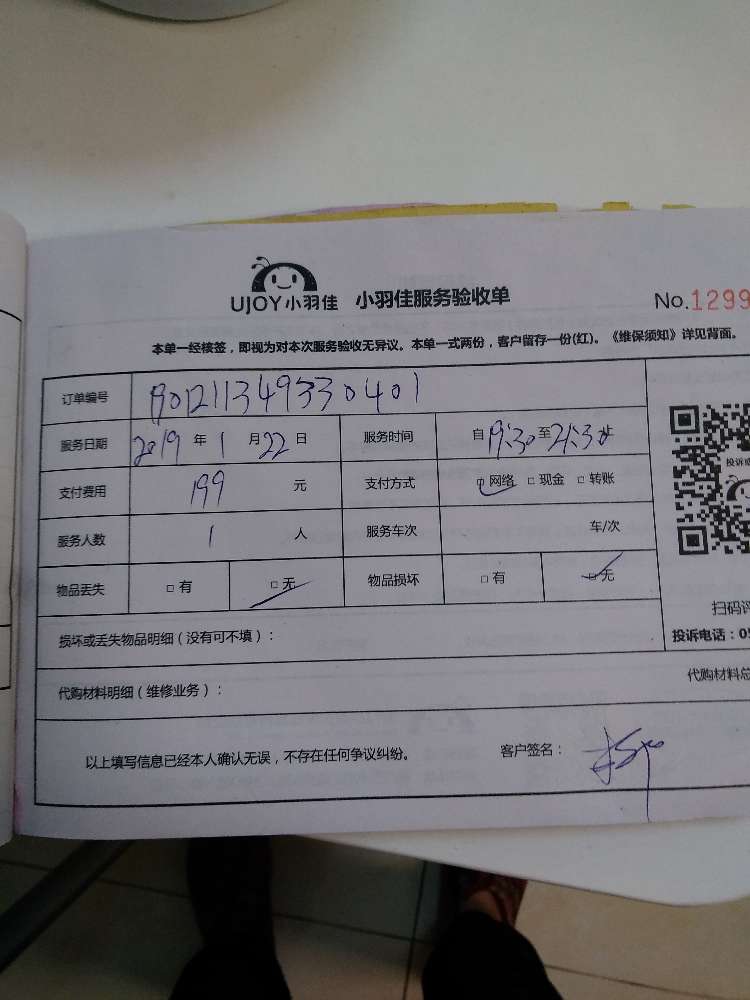 UJOY小羽佳 小羽佳服务验收单 No.1299
本单一经核签，即视为对本次服务验收无异议。本单一式两份，客户留存一份(红)。《维保须知》详见背面。
订单编号
服务日期 2019 年 1 月 22 日 服务时间 自 19:30 至 21:30 止
支付费用 199 元 支付方式 □ 网络 □ 现金 □ 转账
服务人数 1 人 服务车次 车/次
物品丢失 □ 有 □ 无 物品损坏 □ 有 □ 无
投诉或
扫码评
损坏或丢失物品明细（没有可不填）：
投诉电话：05
代购材料明细（维修业务）： 代购材料总
以上填写信息已经本人确认无误，不存在任何争议纠纷。 客户签名：